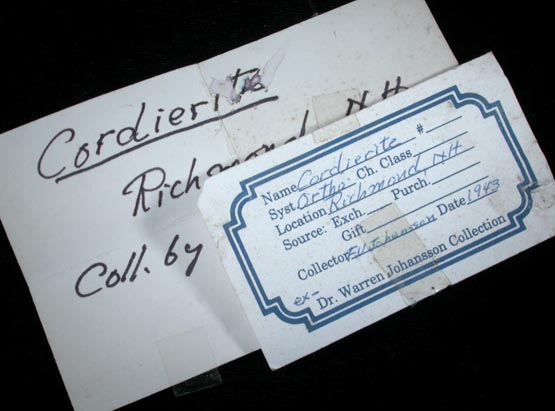 Cordierite
Richmond NH
Coll. by
Name Cordierite #
Syst. Ortho. Ch. Class
Location Richmond NH
Source: Exch. Purch.
Gift Date 1943
Collector
ex- Dr. Warren Johansson Collection